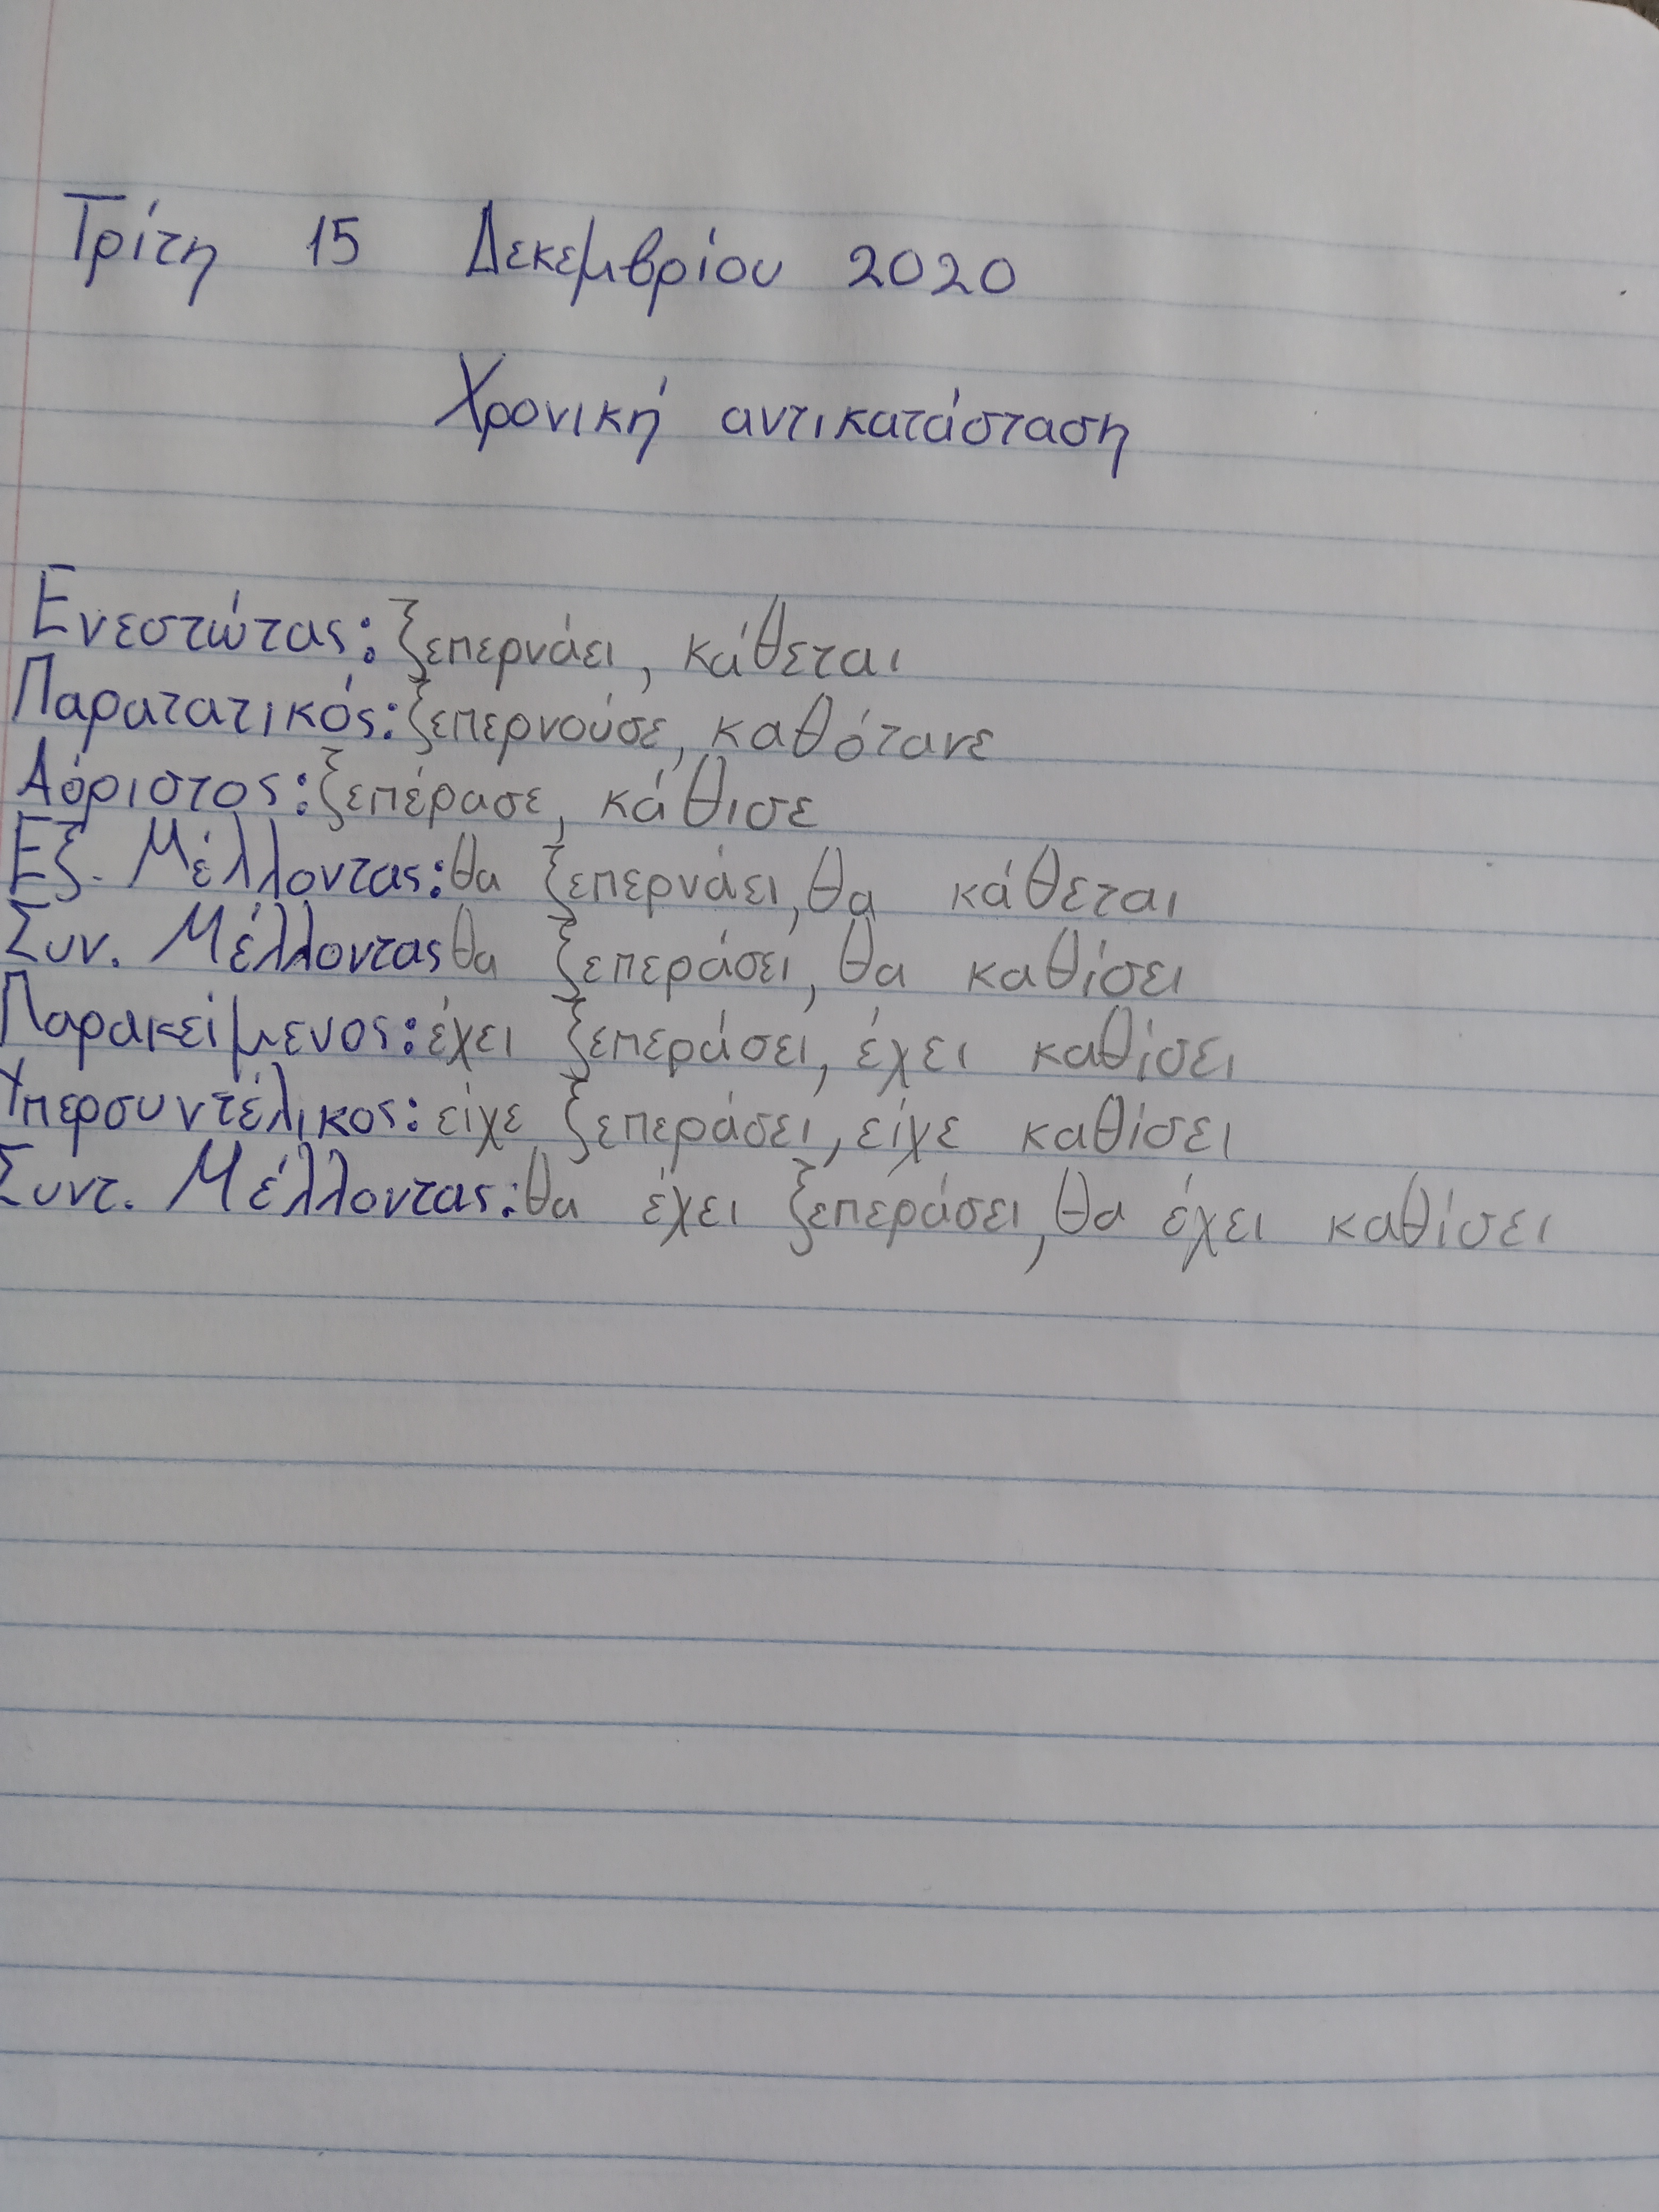 Τρίτη 15 Δεκεμβρίου 2020
Χρονική αντικατάσταση
Ενεστώτας: ξεπερνάει, κάθεται
Παρατατικός: ξεπερνούσε, καθότανε
Αόριστος: ξεπέρασε, κάθισε
Εξ. Μέλλοντας: θα ξεπερνάει, θα κάθεται
Συν. Μέλλοντας θα ξεπεράσει, θα καθίσει
Παρακείμενος: έχει ξεπεράσει, έχει καθίσει
Υπερσυντέλικος: είχε ξεπεράσει, είχε καθίσει
Συντ. Μέλλοντας: θα έχει ξεπεράσει, θα έχει καθίσει